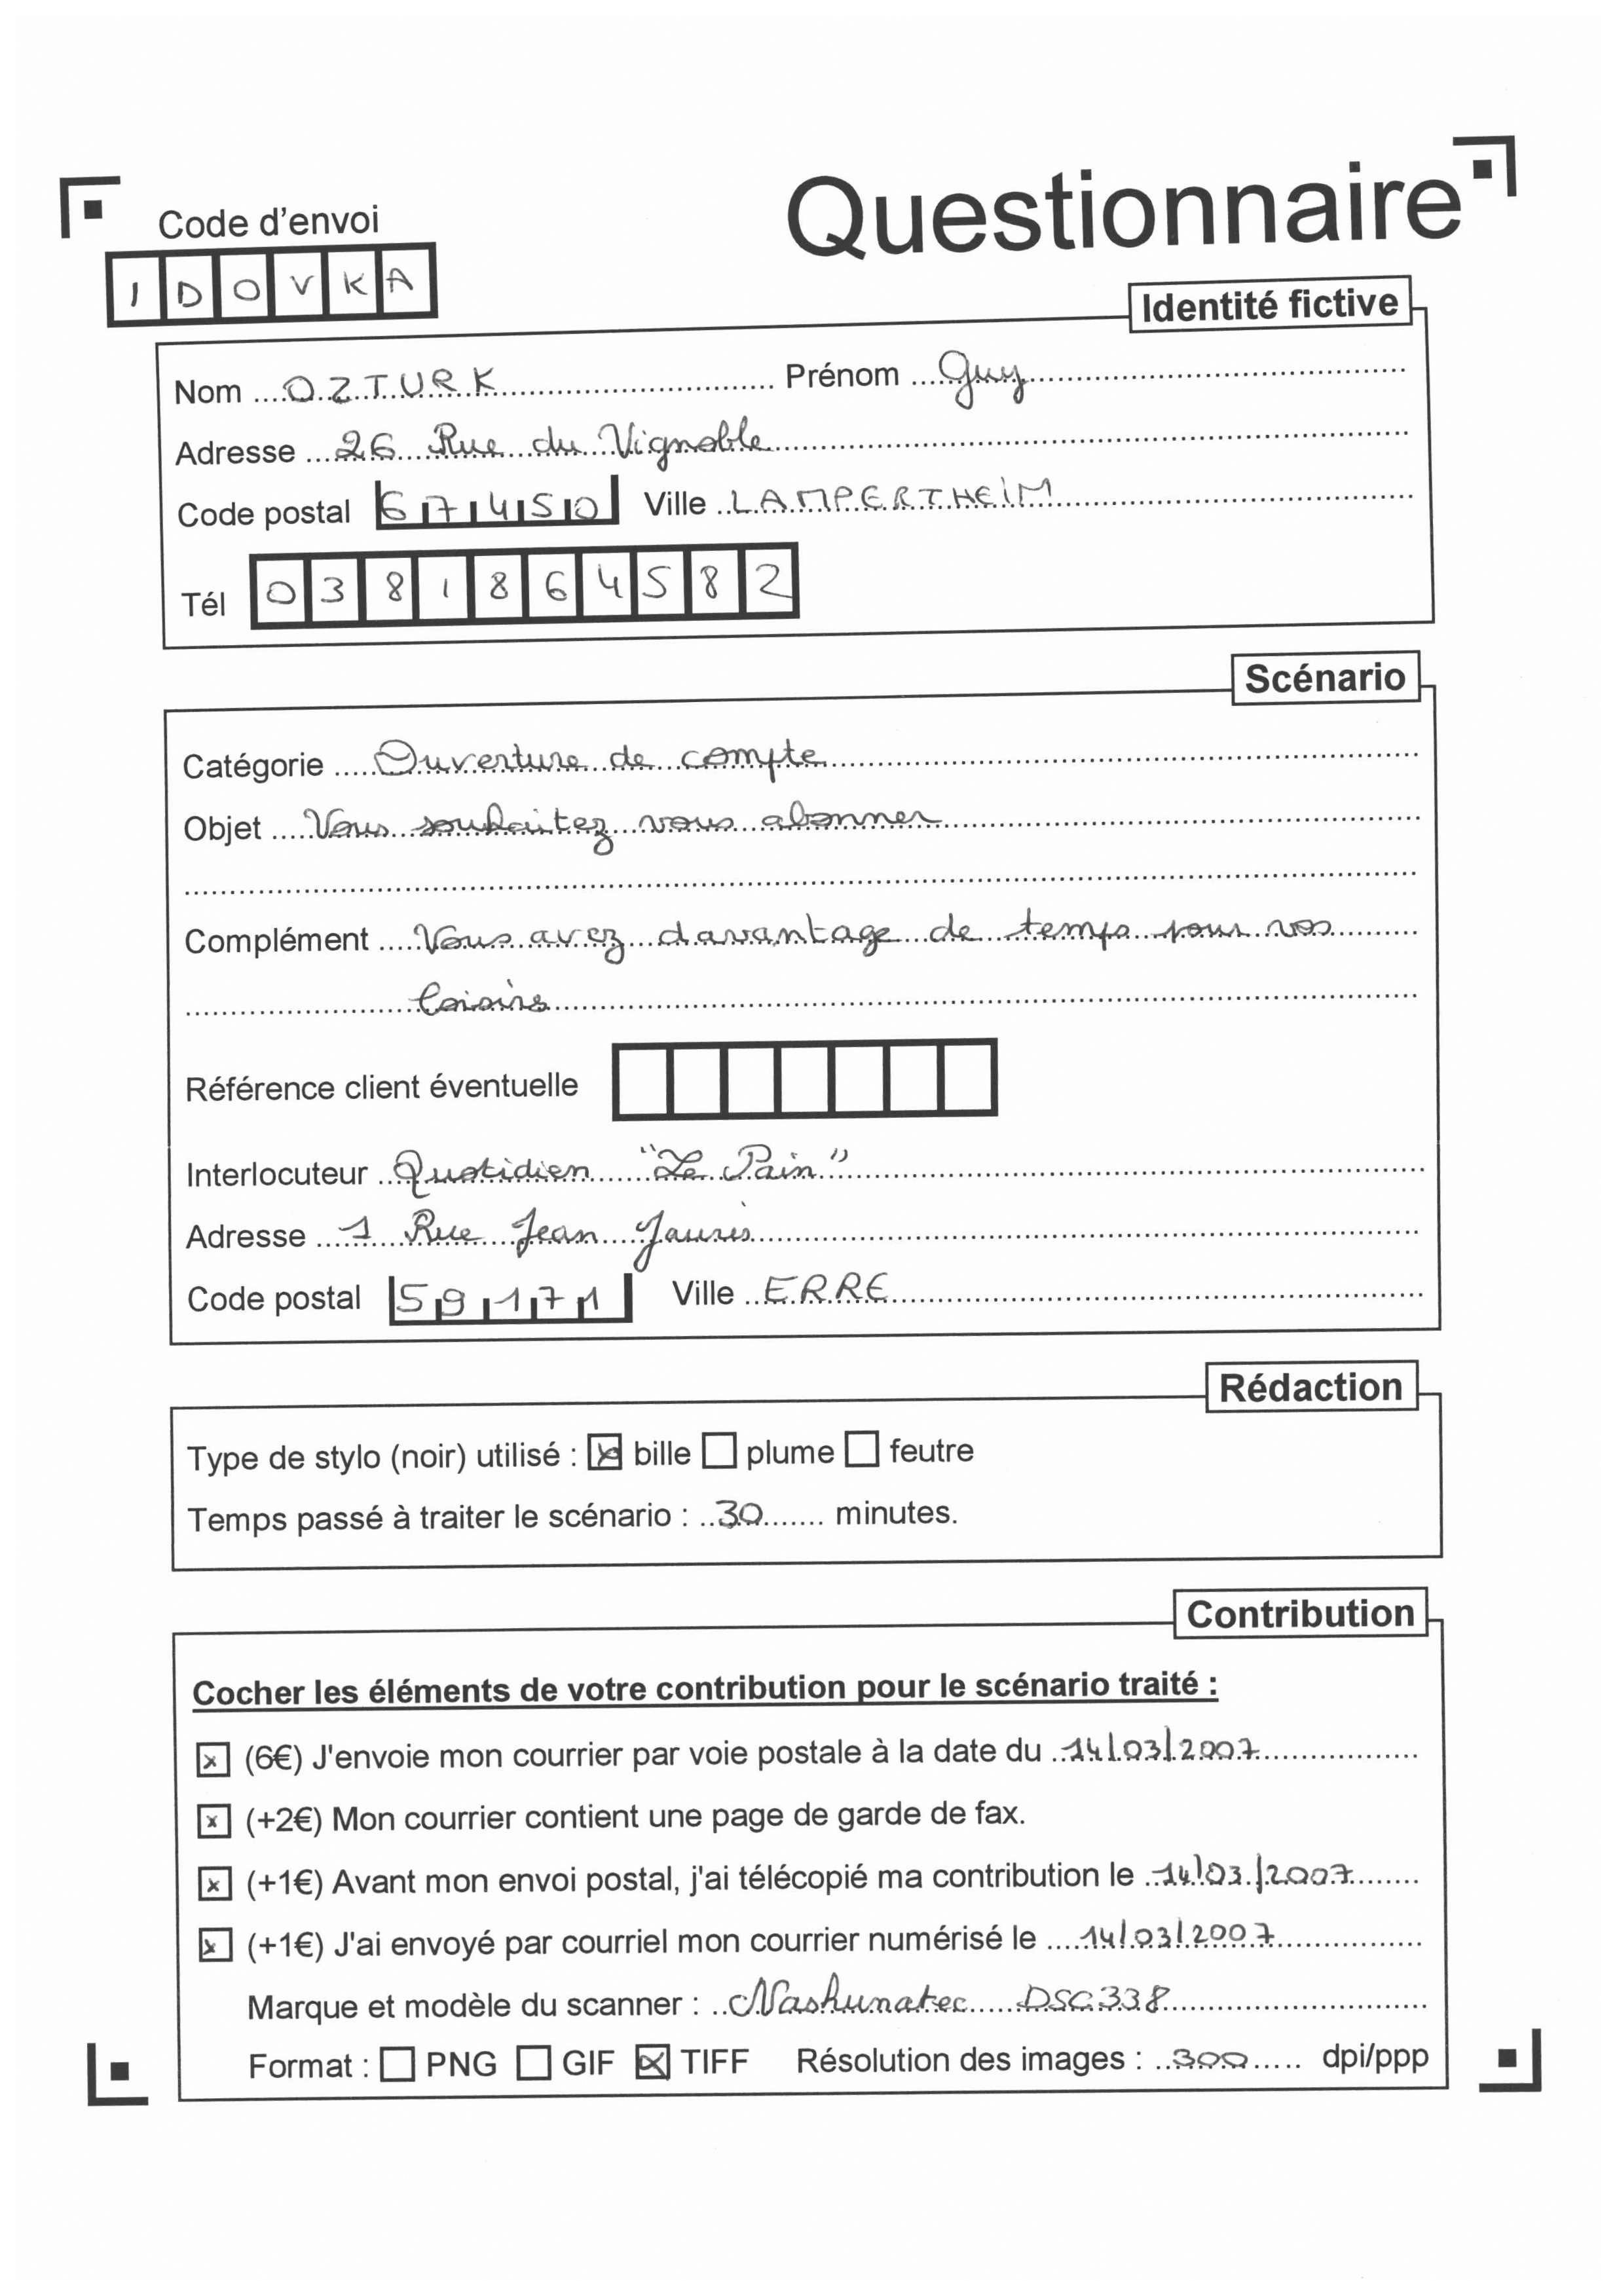 Questionnaire
Code d'envoi
IDOVKA
Identité fictive
Nom OZTURK Prénom Guy
Adresse 26 Rue du Vignoble
Code postal 67450 Ville LAMPERTHEIM
Tél 0381864582
Scénario
Catégorie Ouverture de compte
Objet Vous souhaitez vous abonner
Complément Vous avez davantage de temps pour vos
loisirs
Référence client éventuelle
Interlocuteur Quotidien "Le Pain"
Adresse 1 Rue Jean Jaurès
Code postal 59171 Ville ERRE
Rédaction
Type de stylo (noir) utilisé : bille plume feutre
Temps passé à traiter le scénario : 30 minutes.
Contribution
Cocher les éléments de votre contribution pour le scénario traité :
(6€) J'envoie mon courrier par voie postale à la date du 14/03/2007
(+2€) Mon courrier contient une page de garde de fax.
(+1€) Avant mon envoi postal, j'ai télécopié ma contribution le 14/03/2007
(+1€) J'ai envoyé par courriel mon courrier numérisé le 14/03/2007
Marque et modèle du scanner : Nashuatec DSC338
Format : PNG GIF TIFF Résolution des images : 300 dpi/ppp